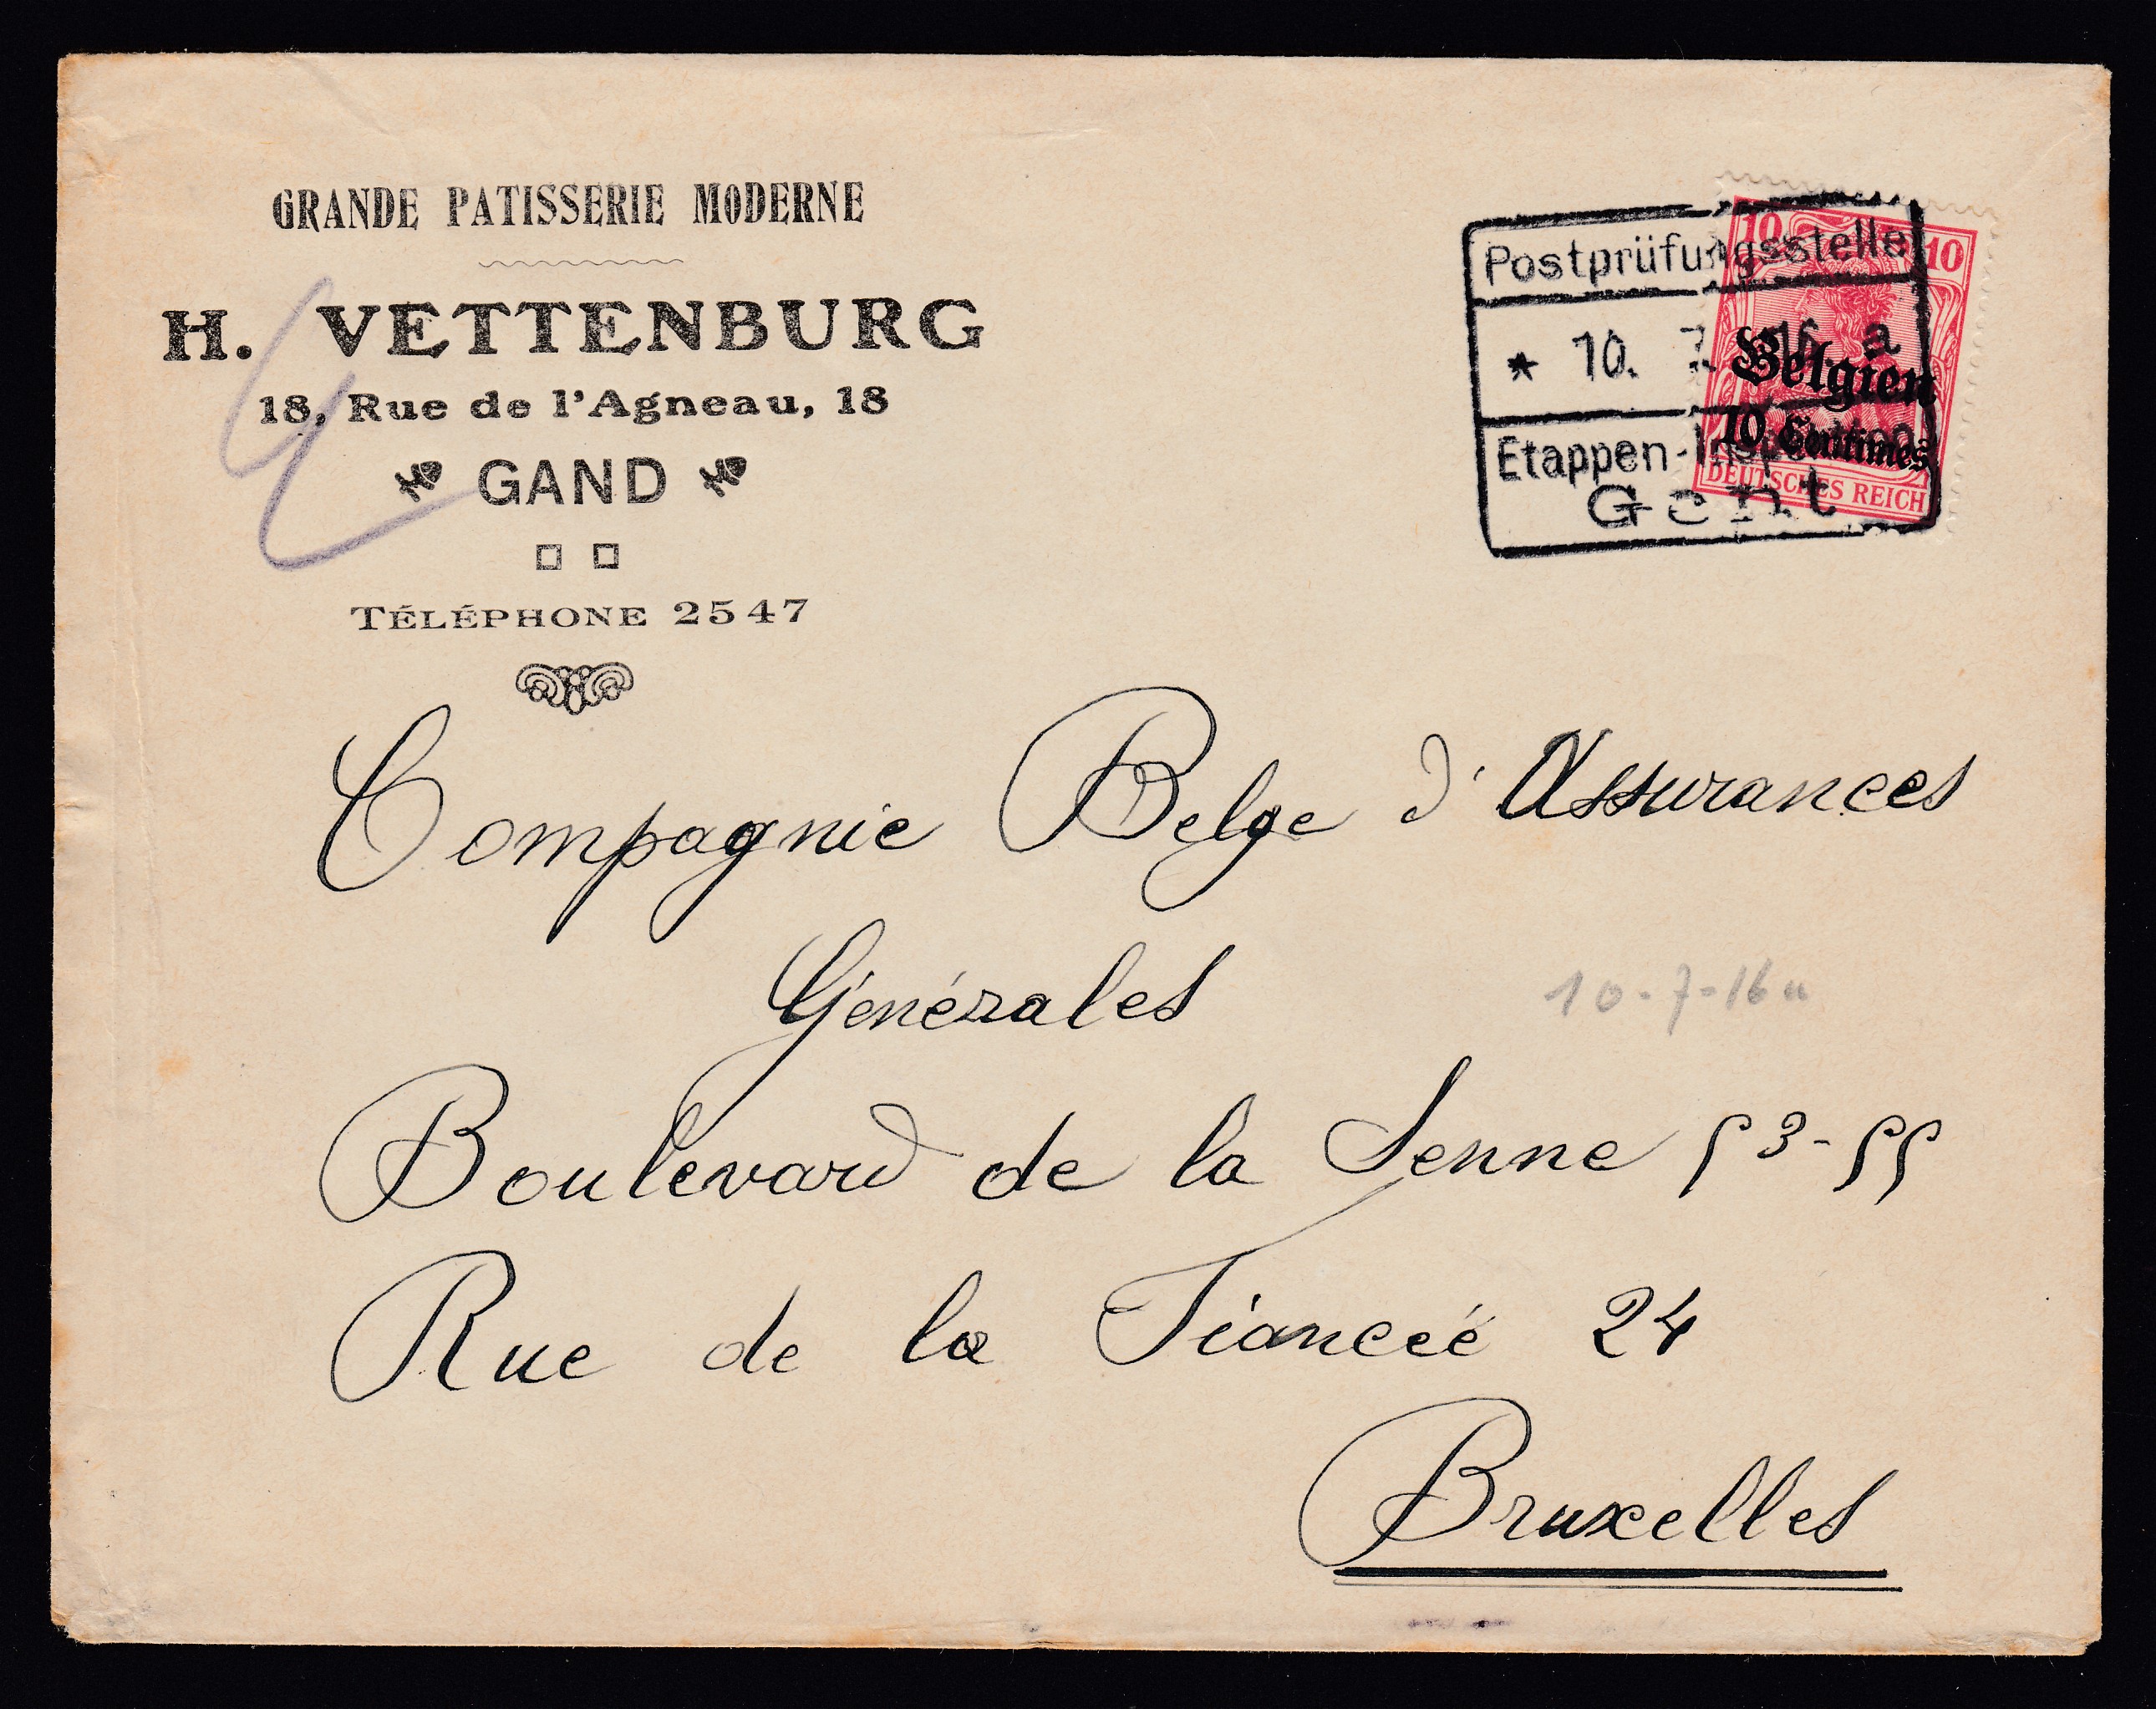 GRANDE PATISSERIE MODERNE
H. VETTENBURG
18, Rue de l'Agneau, 18
GAND
TÉLÉPHONE 2547
Postprüfungsstelle
* 10. 7. 16. a
Etappen-Inspektion
Gent
10 10
Belgien
10 Centimes
DEUTSCHES REICH
Compagnie Belge d'Assurances
Générales
10-7-16 a
Boulevard de la Senne 53-55
Rue de la Fianceé 24
Bruxelles